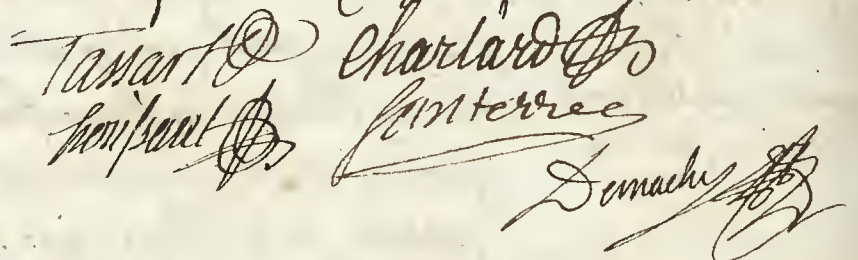 Tassart Charlard
henissant Santerre
Demachy